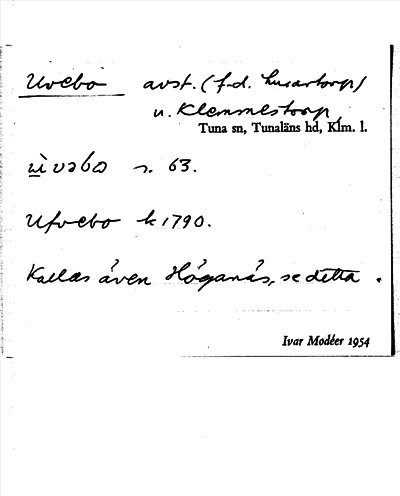 Uvebo avst. (f.d. husartorp)
u. Klemmestorp,
Tuna sn, Tunaläns hd, Klm. l.
ùvəbo n. 63.
Ufvebo k 1790.
Kallas även Höganäs, se detta.
Ivar Modéer 1954